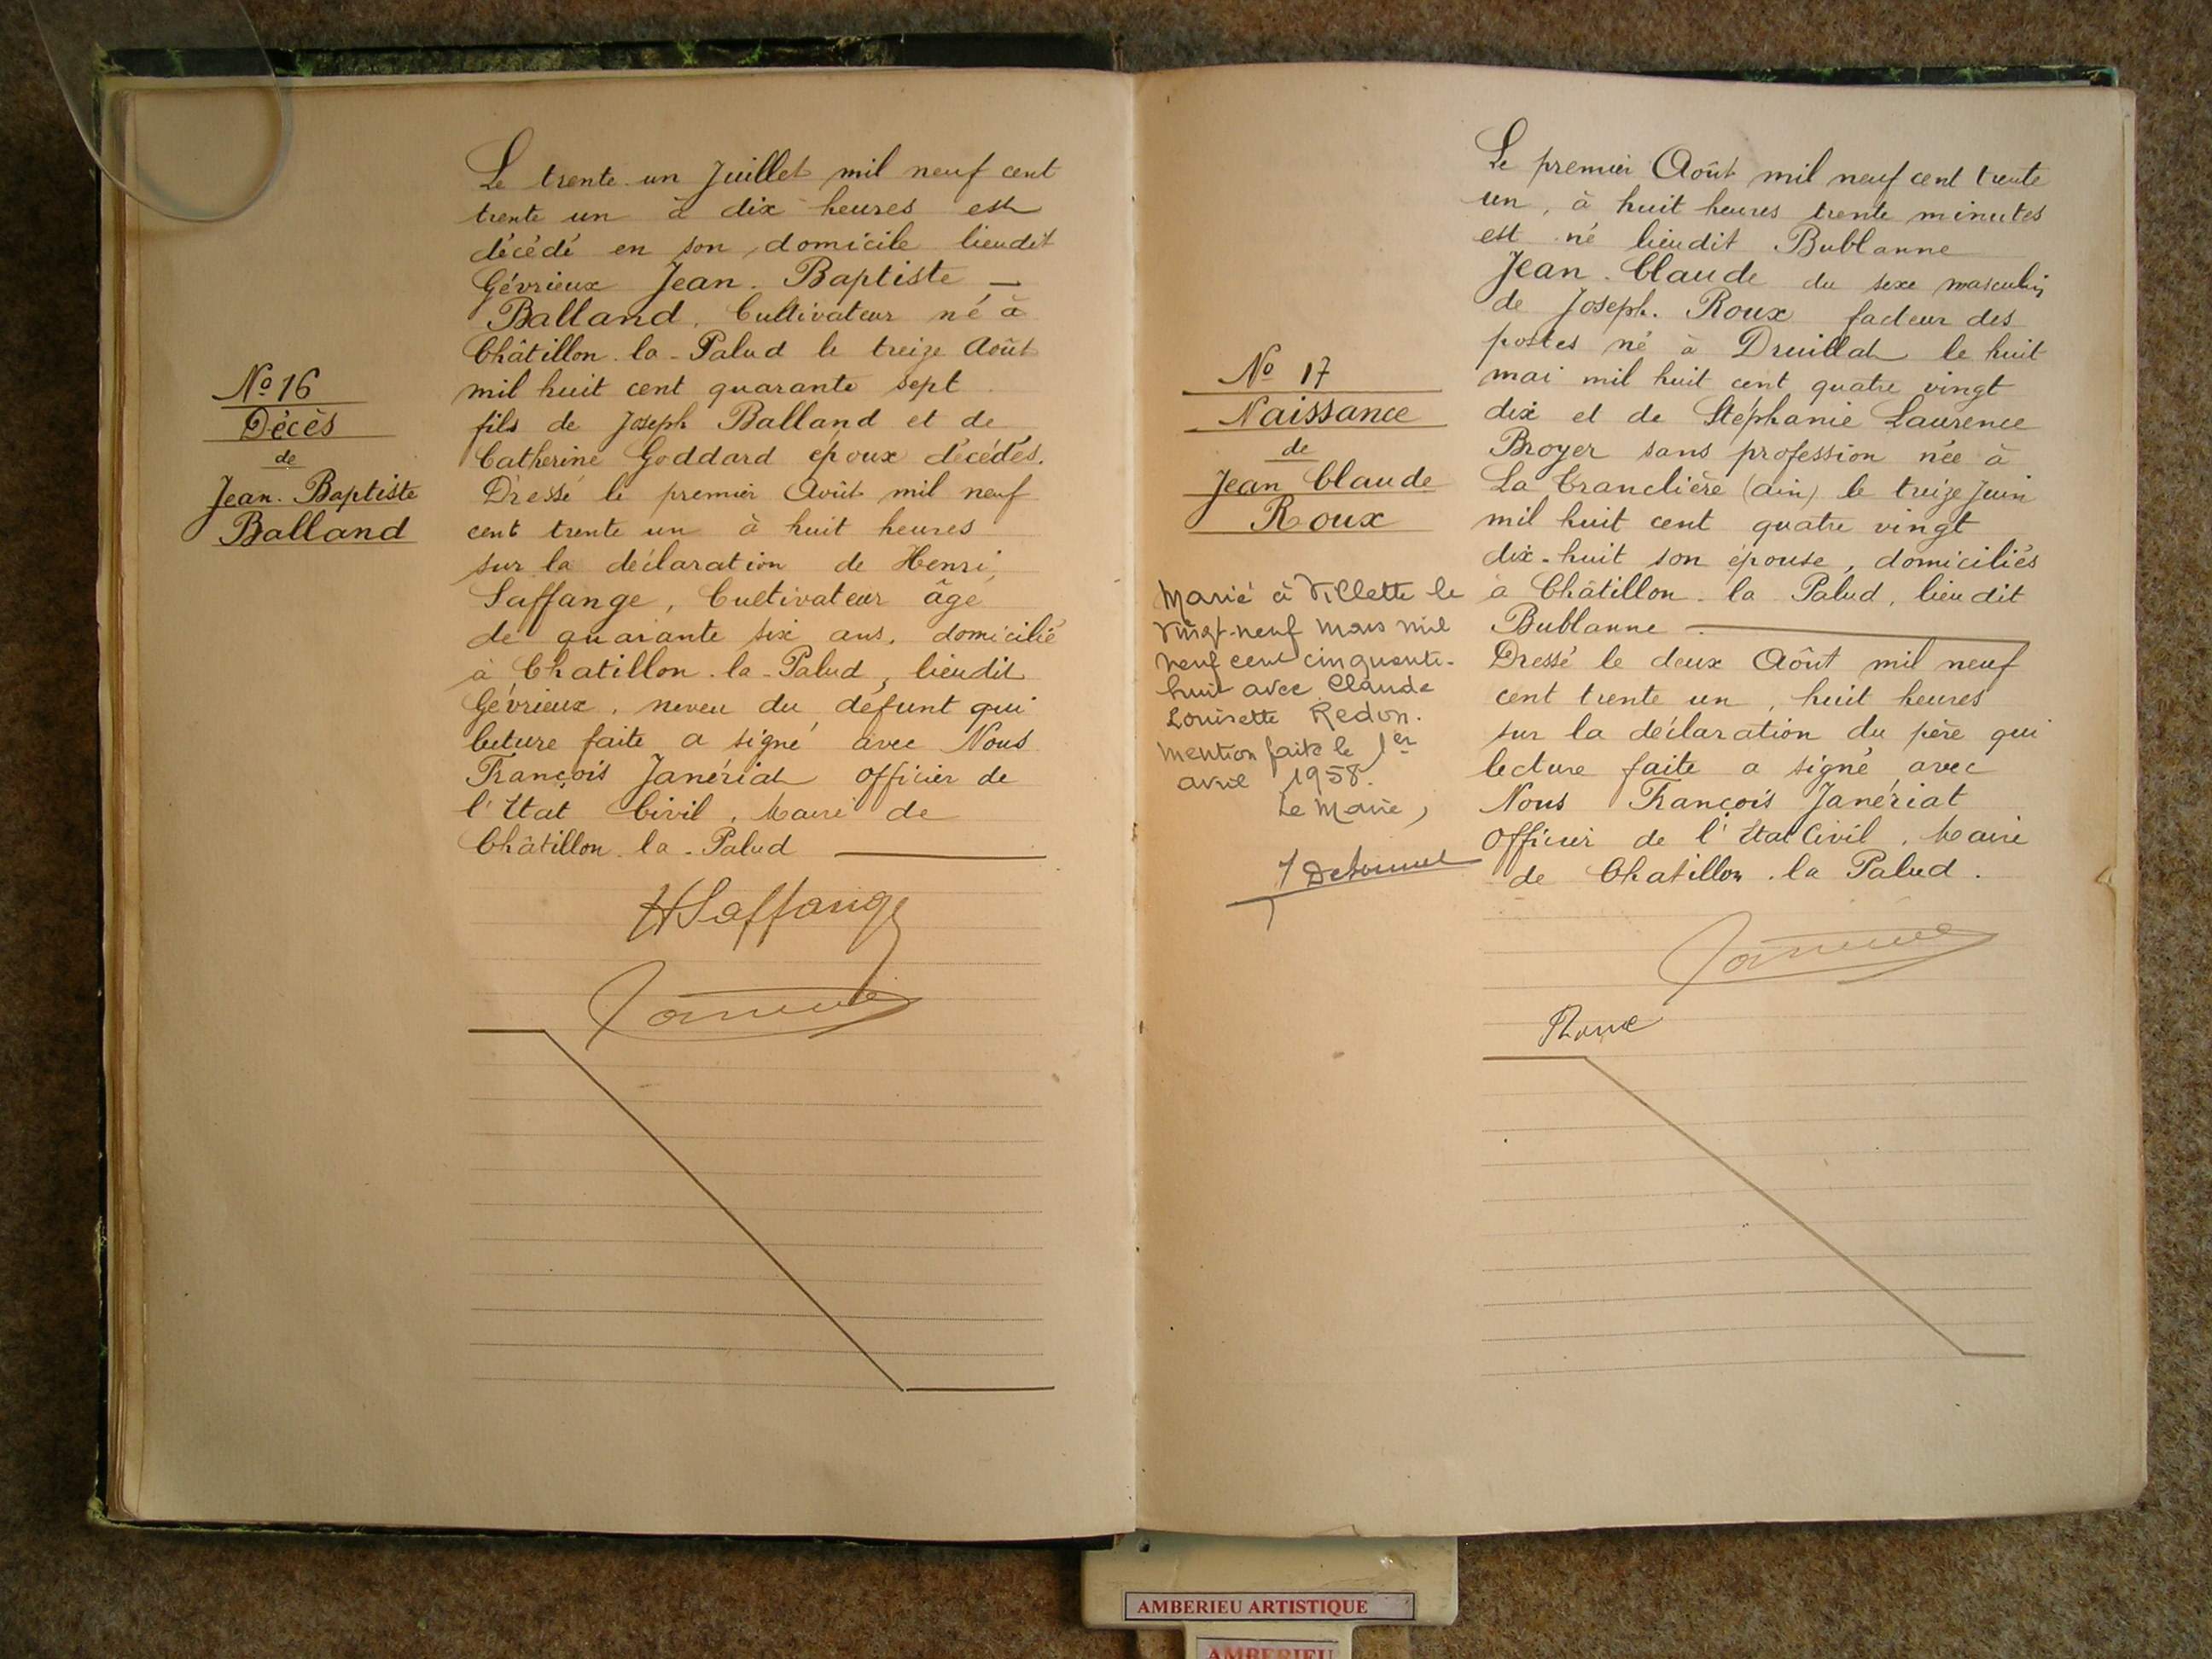 Le trente un Juillet mil neuf cent
trente un à dix heures est
décédé en son domicile lieudit
Gévrieux Jean-Baptiste —
Balland, Cultivateur né à
Châtillon-la-Palud le treize Août
mil huit cent quarante sept
fils de Joseph Balland et de
Catherine Goddard époux décédés.
Dressé le premier Août mil neuf
cent trente un à huit heures
sur la déclaration de Henri,
Laffange, Cultivateur âgé
de quarante six ans, domicilié
à Chatillon-la-Palud, lieudit
Gévrieux, neveu du défunt qui
lecture faite a signé avec Nous
François Janériat officier de
l'Etat Civil, Maire de
Châtillon-la-Palud
No 16
Décès
de
Jean-Baptiste
Balland
HLaffange
Le premier Août mil neuf cent trente
un, à huit heures trente minutes
est né lieudit Bublanne
Jean-Claude du sexe masculin
de Joseph. Roux facteur des
postes né à Druillat le huit
mai mil huit cent quatre vingt
dix et de Stéphanie Laurence
Broyer sans profession née à
La Tranclière (ain) le treize Juin
mil huit cent quatre vingt
dix-huit son épouse, domiciliés
à Châtillon-la Palud, lieudit
Bublanne
Dressé le deux Août mil neuf
cent trente un, huit heures
sur la déclaration du père qui
lecture faite a signé avec
Nous François Janériat
Officier de l'Etat Civil, Maire
de Chatillon-la Palud.
No 17
Naissance
de
Jean Claude
Roux
Marié à Villette le
vingt-neuf Mars mil
neuf cent cinquante-
huit avec Claude
Louisette Redon.
Mention faite le 1er
avril 1958.
Le Maire,
Roux
AMBERIEU ARTISTIQUE
AMBERIEU